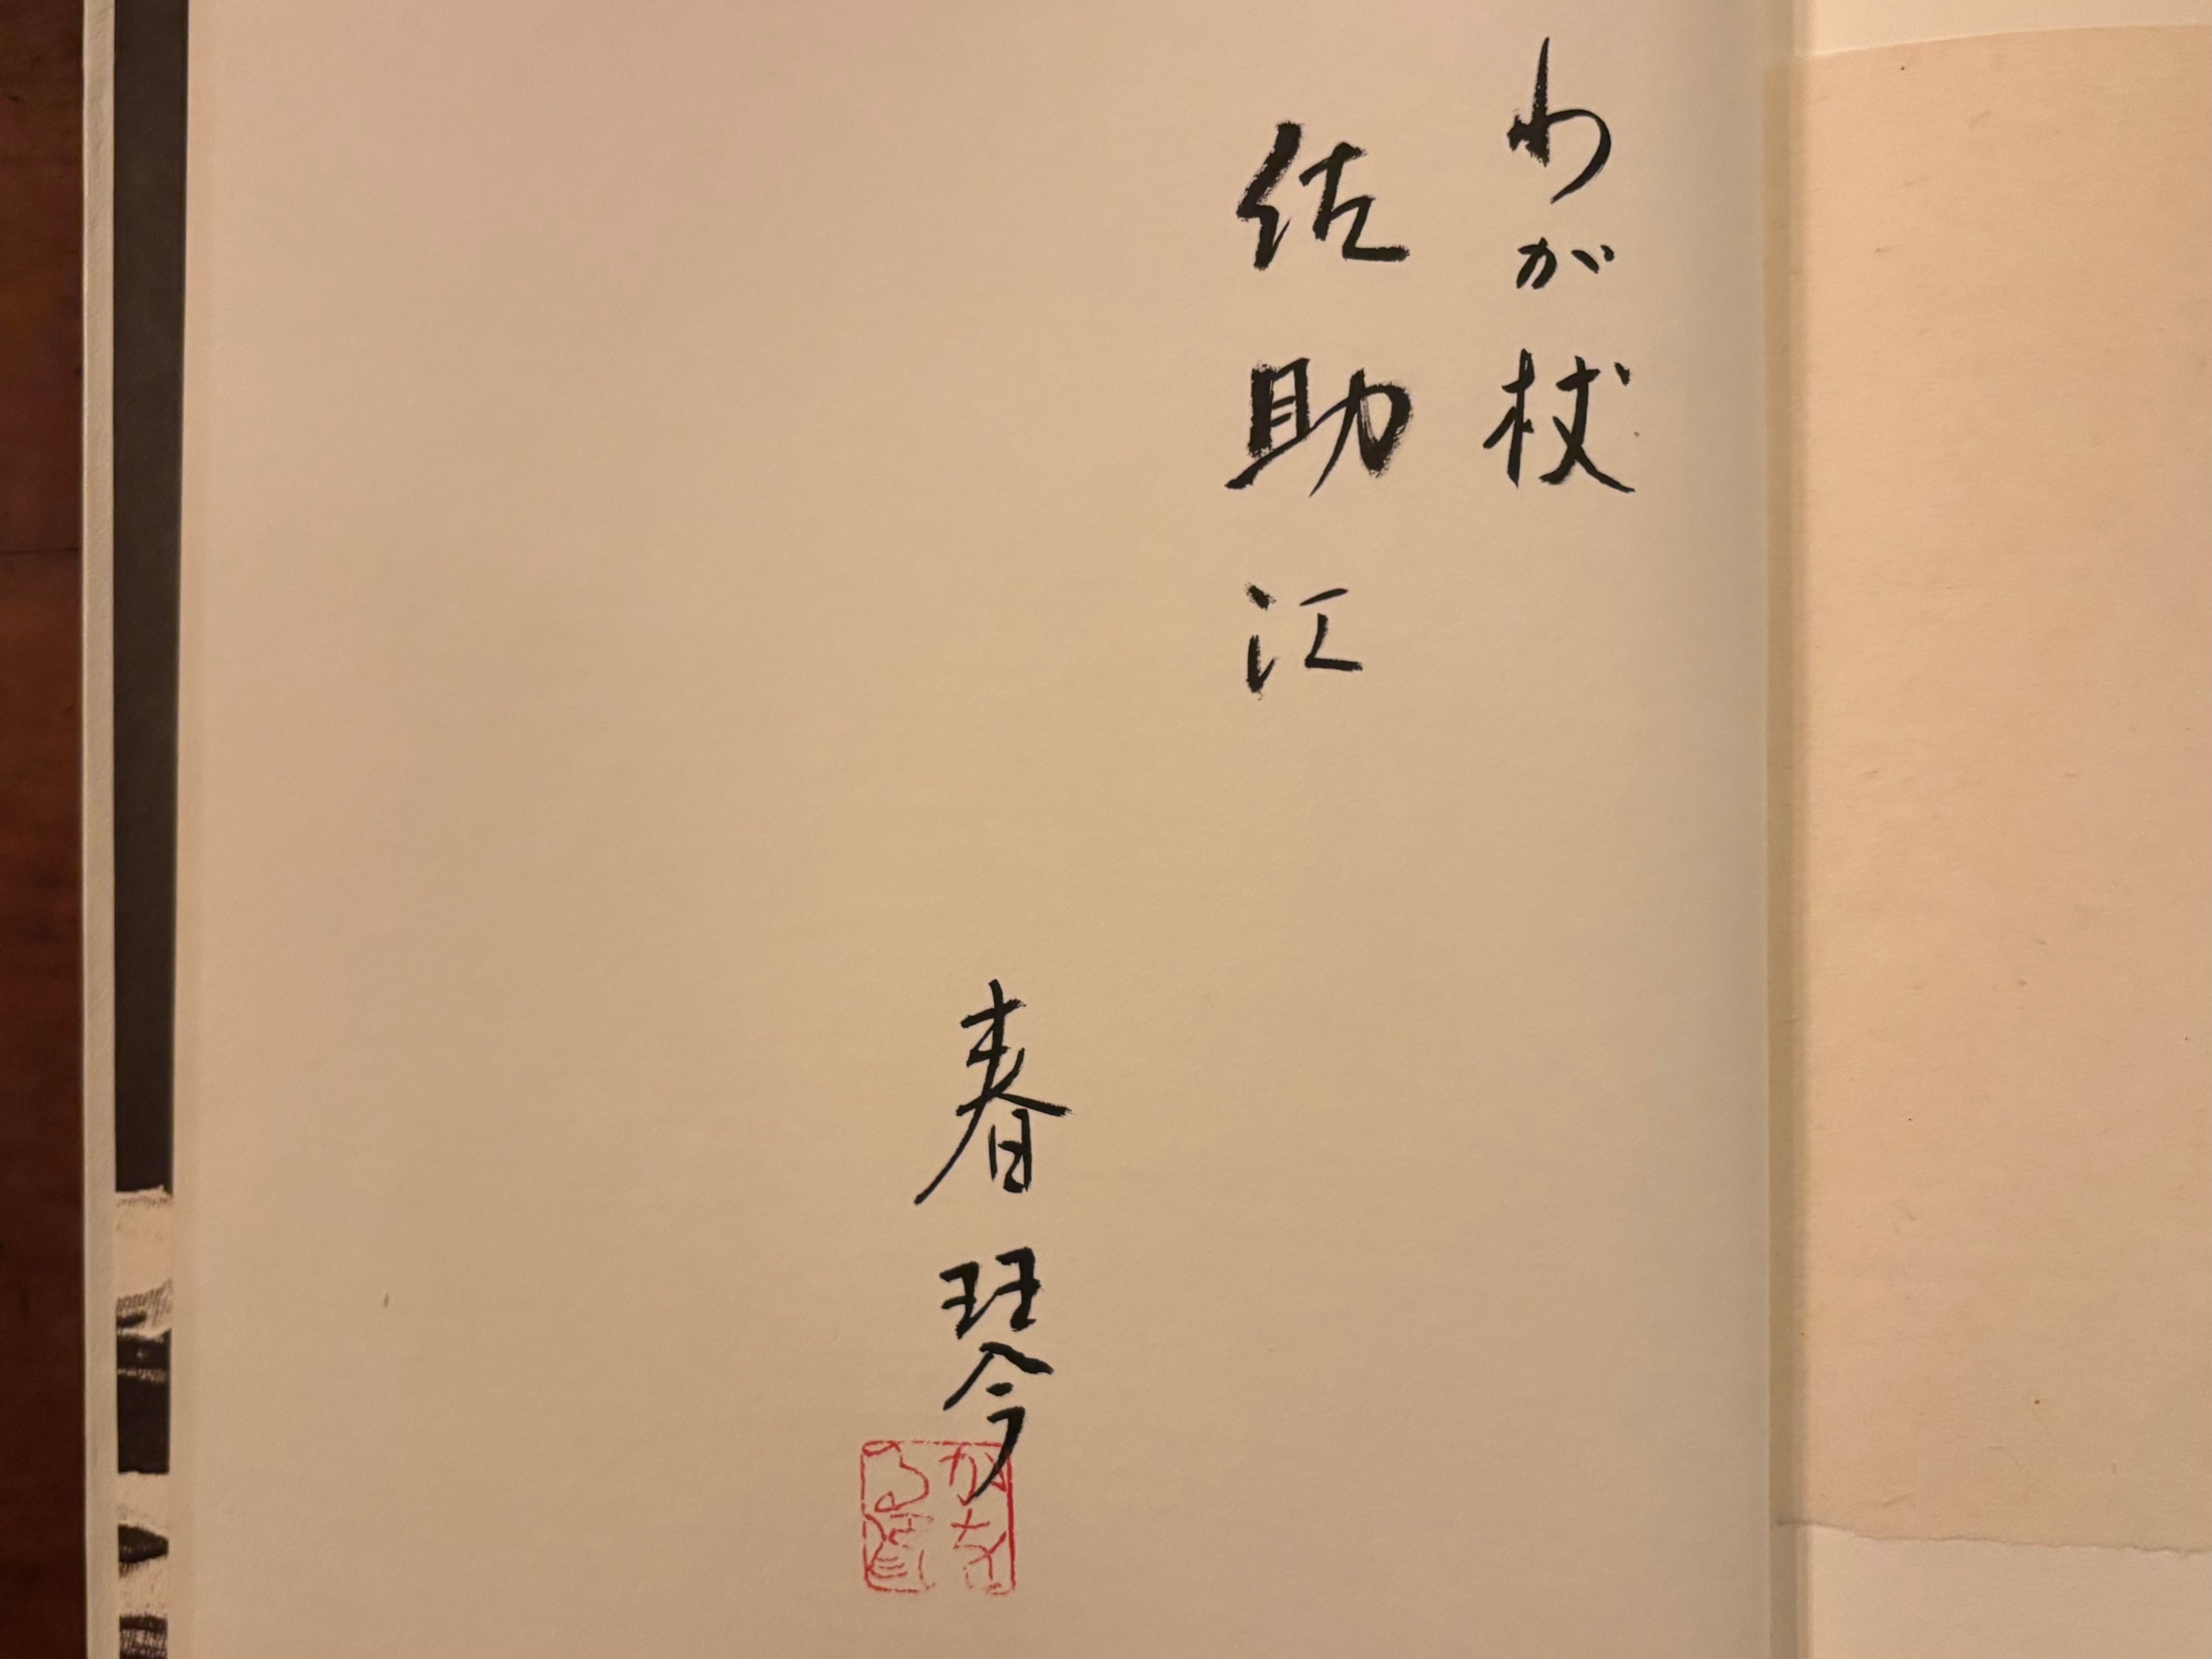 わが杖
佐助江
春琴